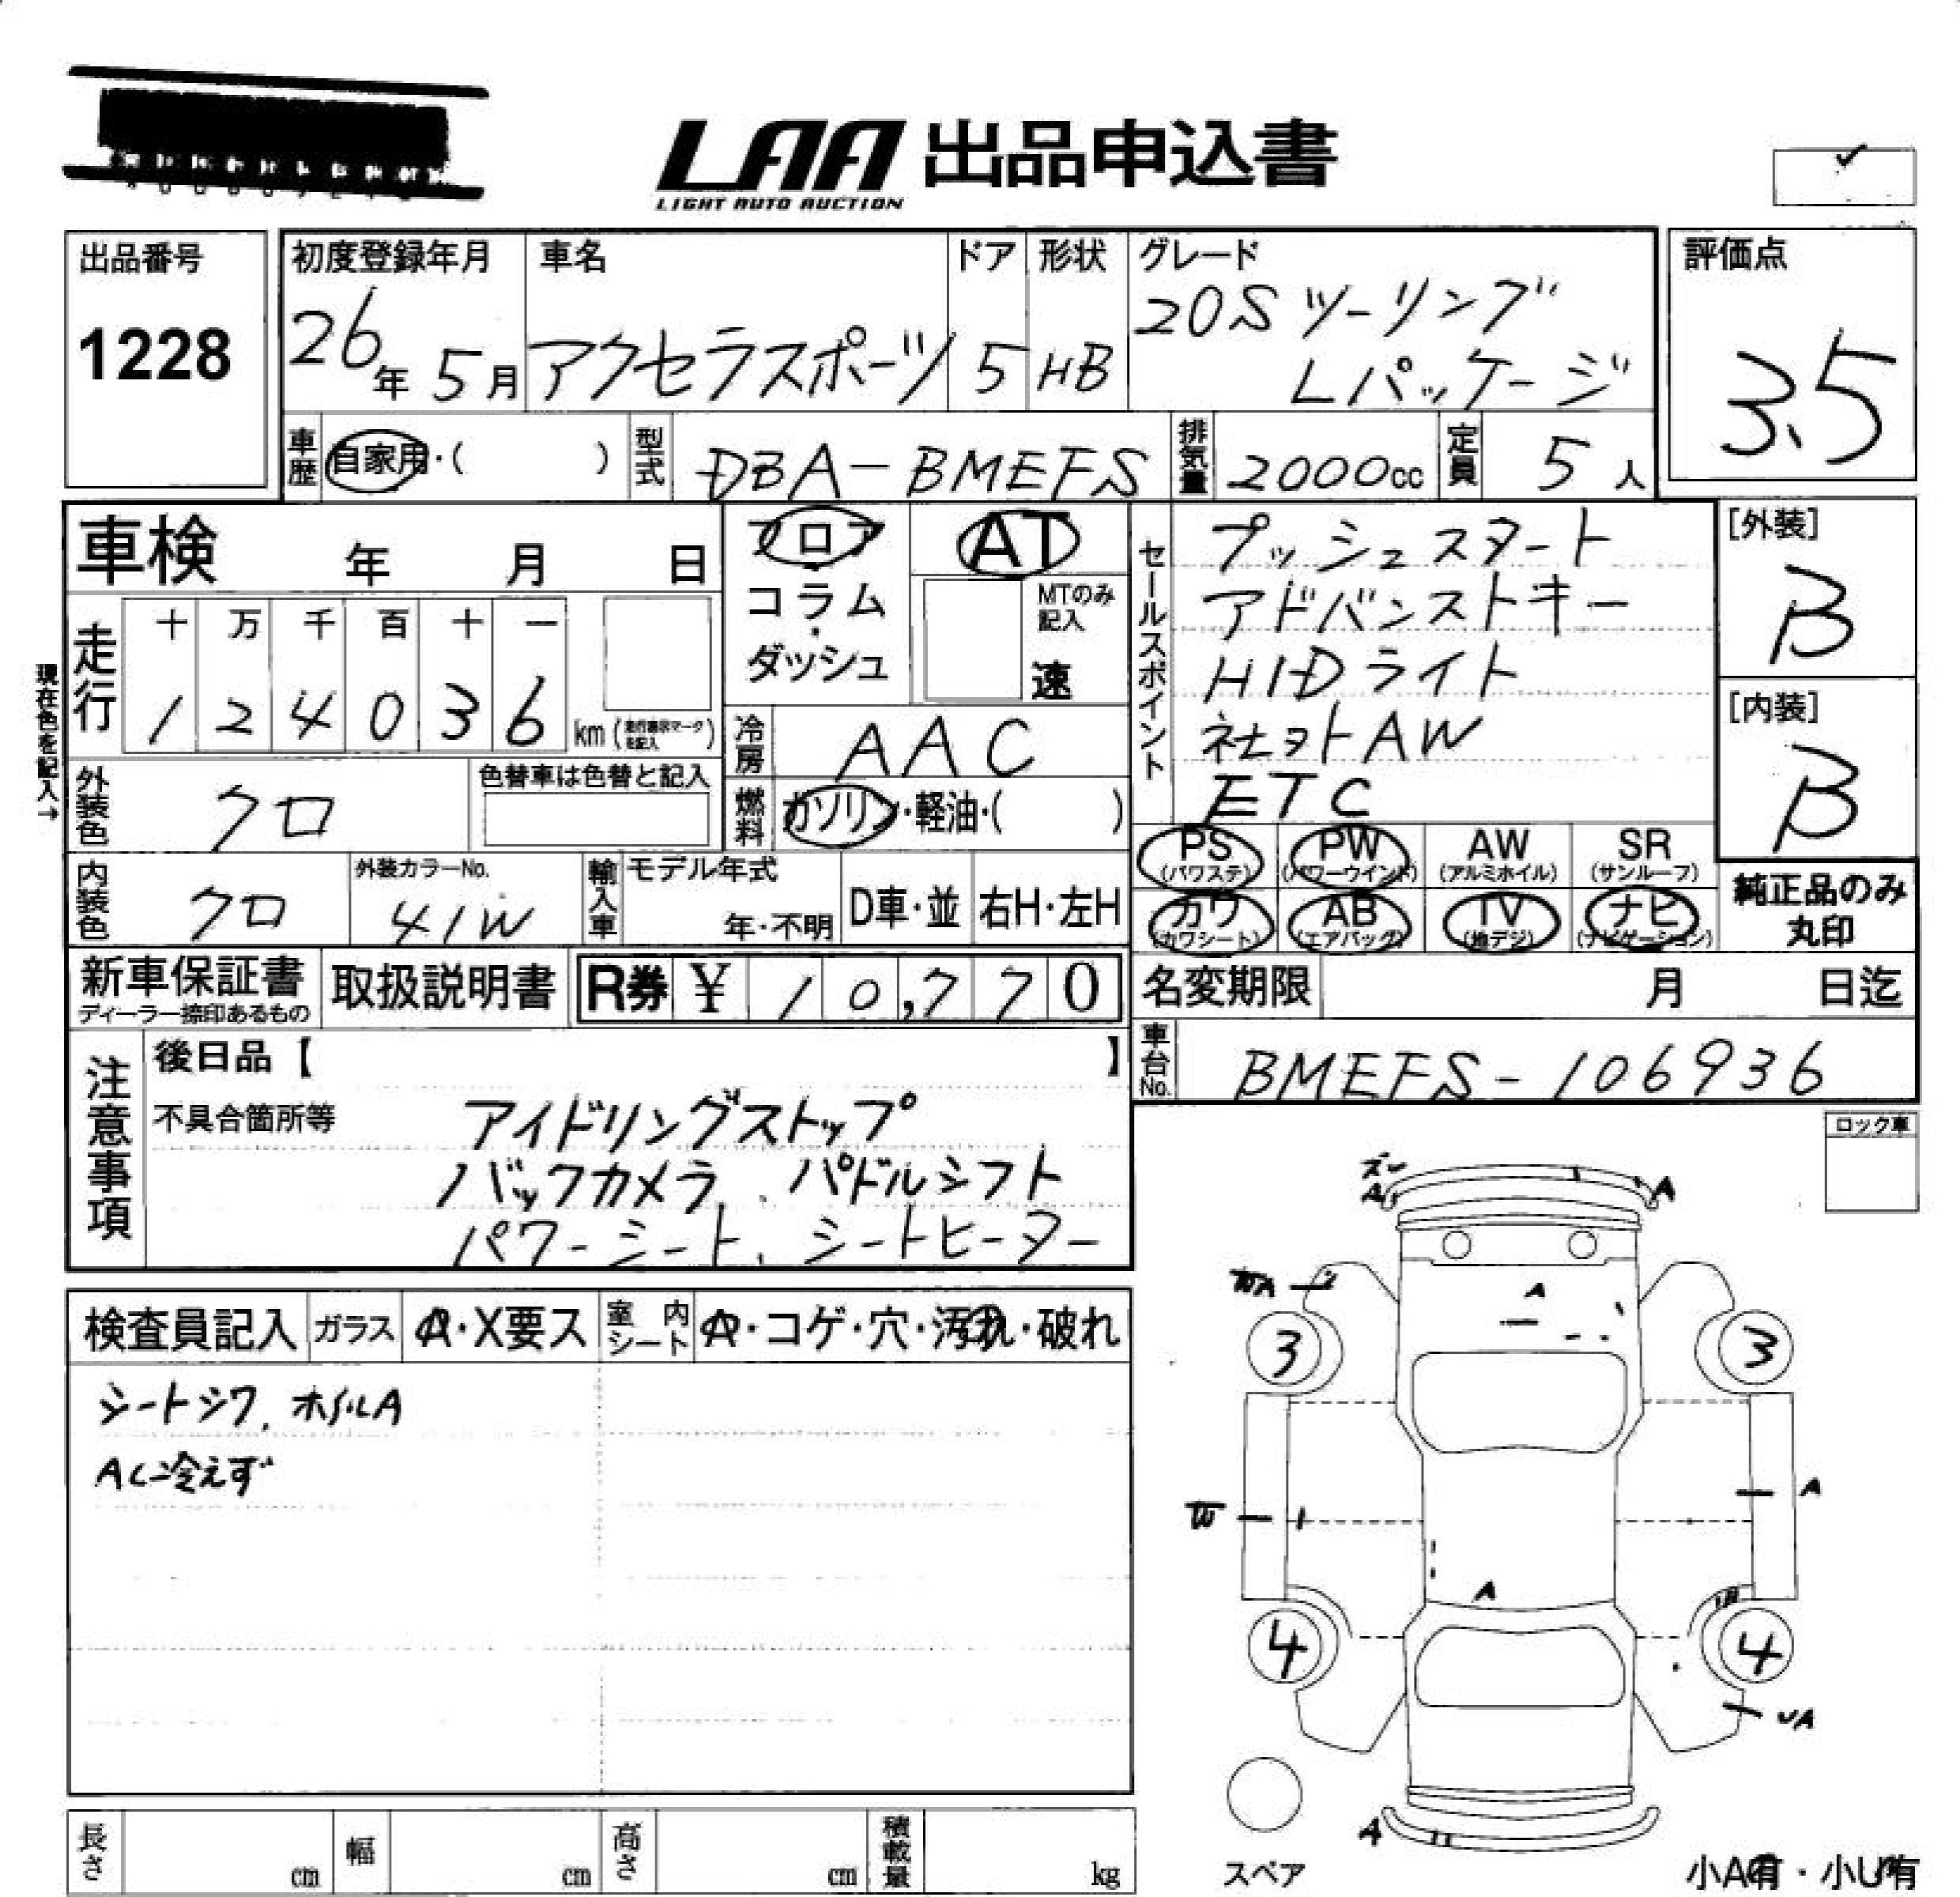 LAA 出品申込書
LIGHT AUTO AUCTION
出品番号
1228
初度登録年月
26年 5月
車名
アクセラスポーツ
ドア
5
形状
HB
グレード
20S ツーリング
Lパッケージ
評価点
3.5
車歴 自家用・( )
型式 DBA-BMEFS
排気量 2000cc
定員 5人
車検 年 月 日
フロア
コラム
・
ダッシュ
AT
MTのみ
記入
速
セールスポイント
プッシュスタート
アドバンストキー
HIDライト
社ヨトAW
ETC
[外装]
B
[内装]
B
現在色を記入→
走行
十 万 千 百 十 一
1 2 4 0 3 6 km
冷房 AAC
外装色 クロ
色替車は色替と記入
燃料 ガソリン・軽油・( )
PS PW AW SR
(パワステ) (パワーウインド) (アルミホイル) (サンルーフ)
カワ AB TV ナビ
(カワシート) (エアバッグ) (地デジ) (ナビゲーション)
純正品のみ
丸印
内装色 クロ
外装カラーNo.
41W
輸入車
モデル年式
年・不明
D車・並
右H・左H
新車保証書
ディーラー捺印あるもの
取扱説明書
R券 ¥ 10,770
名変期限 月 日迄
車台No. BMEFS-106936
注意事項
後日品【 】
不具合箇所等 アイドリングストップ
バックカメラ、パドルシフト
パワーシート、シートヒーター
ロック車
検査員記入 ガラス A・X要ス 室内シート A・コゲ・穴・汚れ・破れ
シートシワ、ホイルA
AC冷えず
A A
A
3 3
A
W
A
4 4
A
スペア
小A有・小U有
長さ cm 幅 cm 高さ cm 積載量 kg